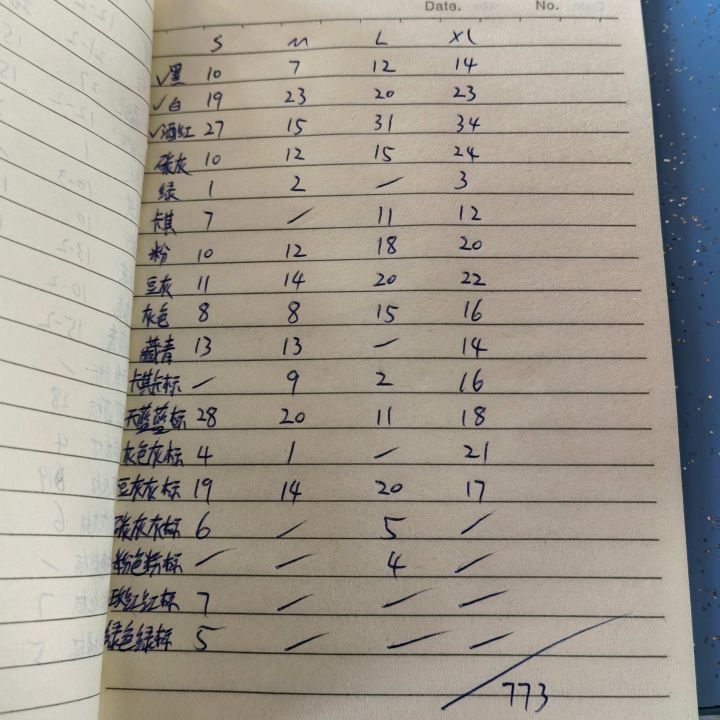 Date. No.
S M L XL
√黑 10 7 12 14
√白 19 23 20 23
√酒红 27 15 31 34
碳灰 10 12 15 24
绿 1 2 / 3
卡其 7 / 11 12
粉 10 12 18 20
豆灰 11 14 20 22
灰色 8 8 15 16
藏青 13 13 / 14
卡其卡标 / 9 2 16
天蓝蓝标 28 20 11 18
灰色灰标 4 1 / 21
豆灰灰标 19 14 20 17
碳灰灰标 6 / 5 /
粉色粉标 / / 4 /
玫红红标 7 / / /
绿色绿标 5 / / /
773